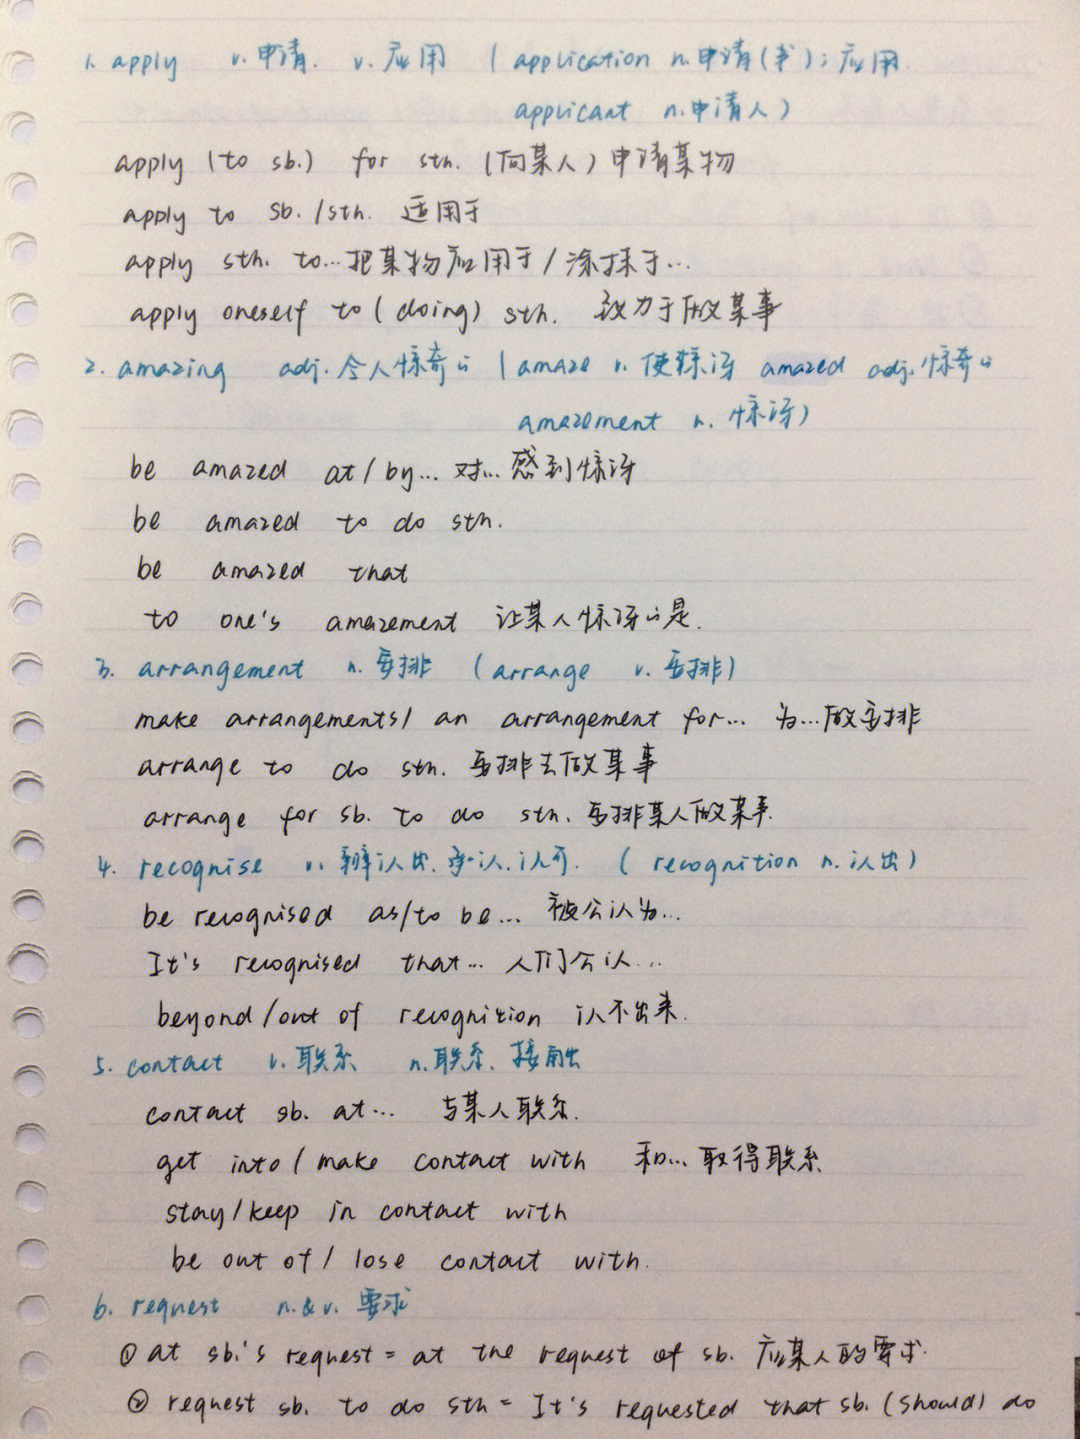 1. apply v.申请. v.应用 (application n.申请(书);应用.
applicant n.申请人)
apply (to sb.) for sth. (向某人)申请某物
apply to sb./sth. 适用于
apply sth. to...把某物应用于/涂抹于...
apply oneself to (doing) sth. 致力于做某事
2. amazing adj.令人惊奇的 (amaze v.使惊讶 amazed adj.惊奇的
amazement n.惊讶)
be amazed at/by... 对...感到惊讶
be amazed to do sth.
be amazed that
to one's amazement 让某人惊讶的是.
3. arrangement n.安排 (arrange v.安排)
make arrangements/ an arrangement for... 为...做安排
arrange to do sth. 安排去做某事
arrange for sb. to do sth. 安排某人做某事.
4. recognise v.辨认出.承认.认可. (recognition n.认出)
be recognised as/to be... 被公认为...
It's recognised that... 人们公认...
beyond/out of recognition 认不出来.
5. contact v.联系 n.联系、接触
contact sb. at... 与某人联系.
get into/make contact with 和...取得联系
stay/keep in contact with
be out of/lose contact with.
6. request n.&v.要求
① at sb.'s request = at the request of sb. 应某人的要求.
② request sb. to do sth = It's requested that sb. (should) do